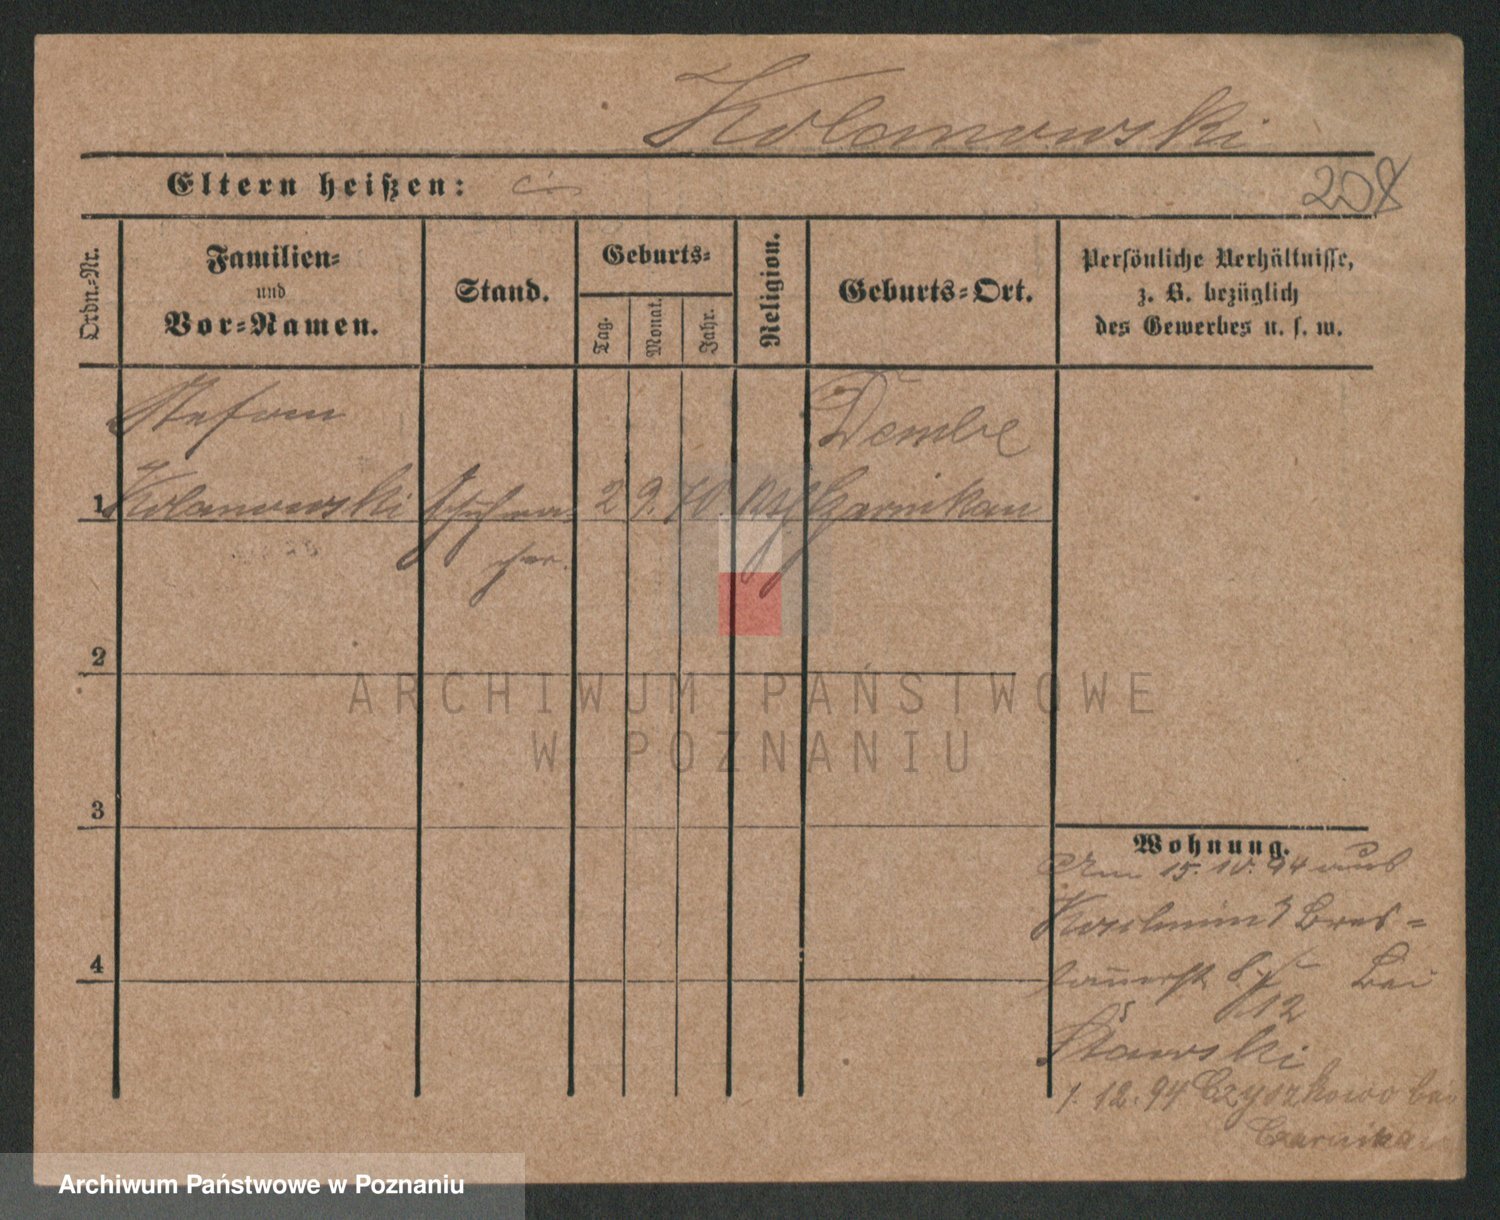 Kolanowski
Eltern heißen:
208
Ordn.-Nr.
Familien-
und
Vor-Namen.
Stand.
Geburts-
Tag.
Monat.
Jahr.
Religion.
Geburts-Ort.
Persönliche Verhältnisse,
z. B. bezüglich
des Gewerbes u. s. w.
Stefan
Dembe
1
Kolanowski
Schuhma-
2
9.
70
Czarnikau
cher.
2
ARCHIWUM PAŃSTWOWE
W POZNANIU
3
Wohnung.
Am 15.10.94 aus
Bres-
4
lauerstr. Bei
12
Stawski
1.12.94 Czyszkowo bei
Czarnikau
Archiwum Państwowe w Poznaniu